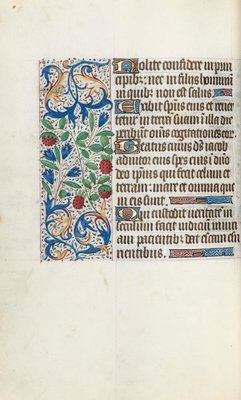 Nolite confidere in prin
cipib9: nec in filijs hominu
in quib9 non est salus.
Exibit sps eius et rever
tetur in terra suam in illa die
peribunt oms cogitationes eor.
Beatus cuius ds iacob
adiutor eius spes eius i dno
deo ipsius qui fecit celum et
terram: mare et omnia que
in eis sunt.
Qui custodit veritate in
seculum facit iudiciu iniuri
am pacientib9: dat escam esu
rientibus.